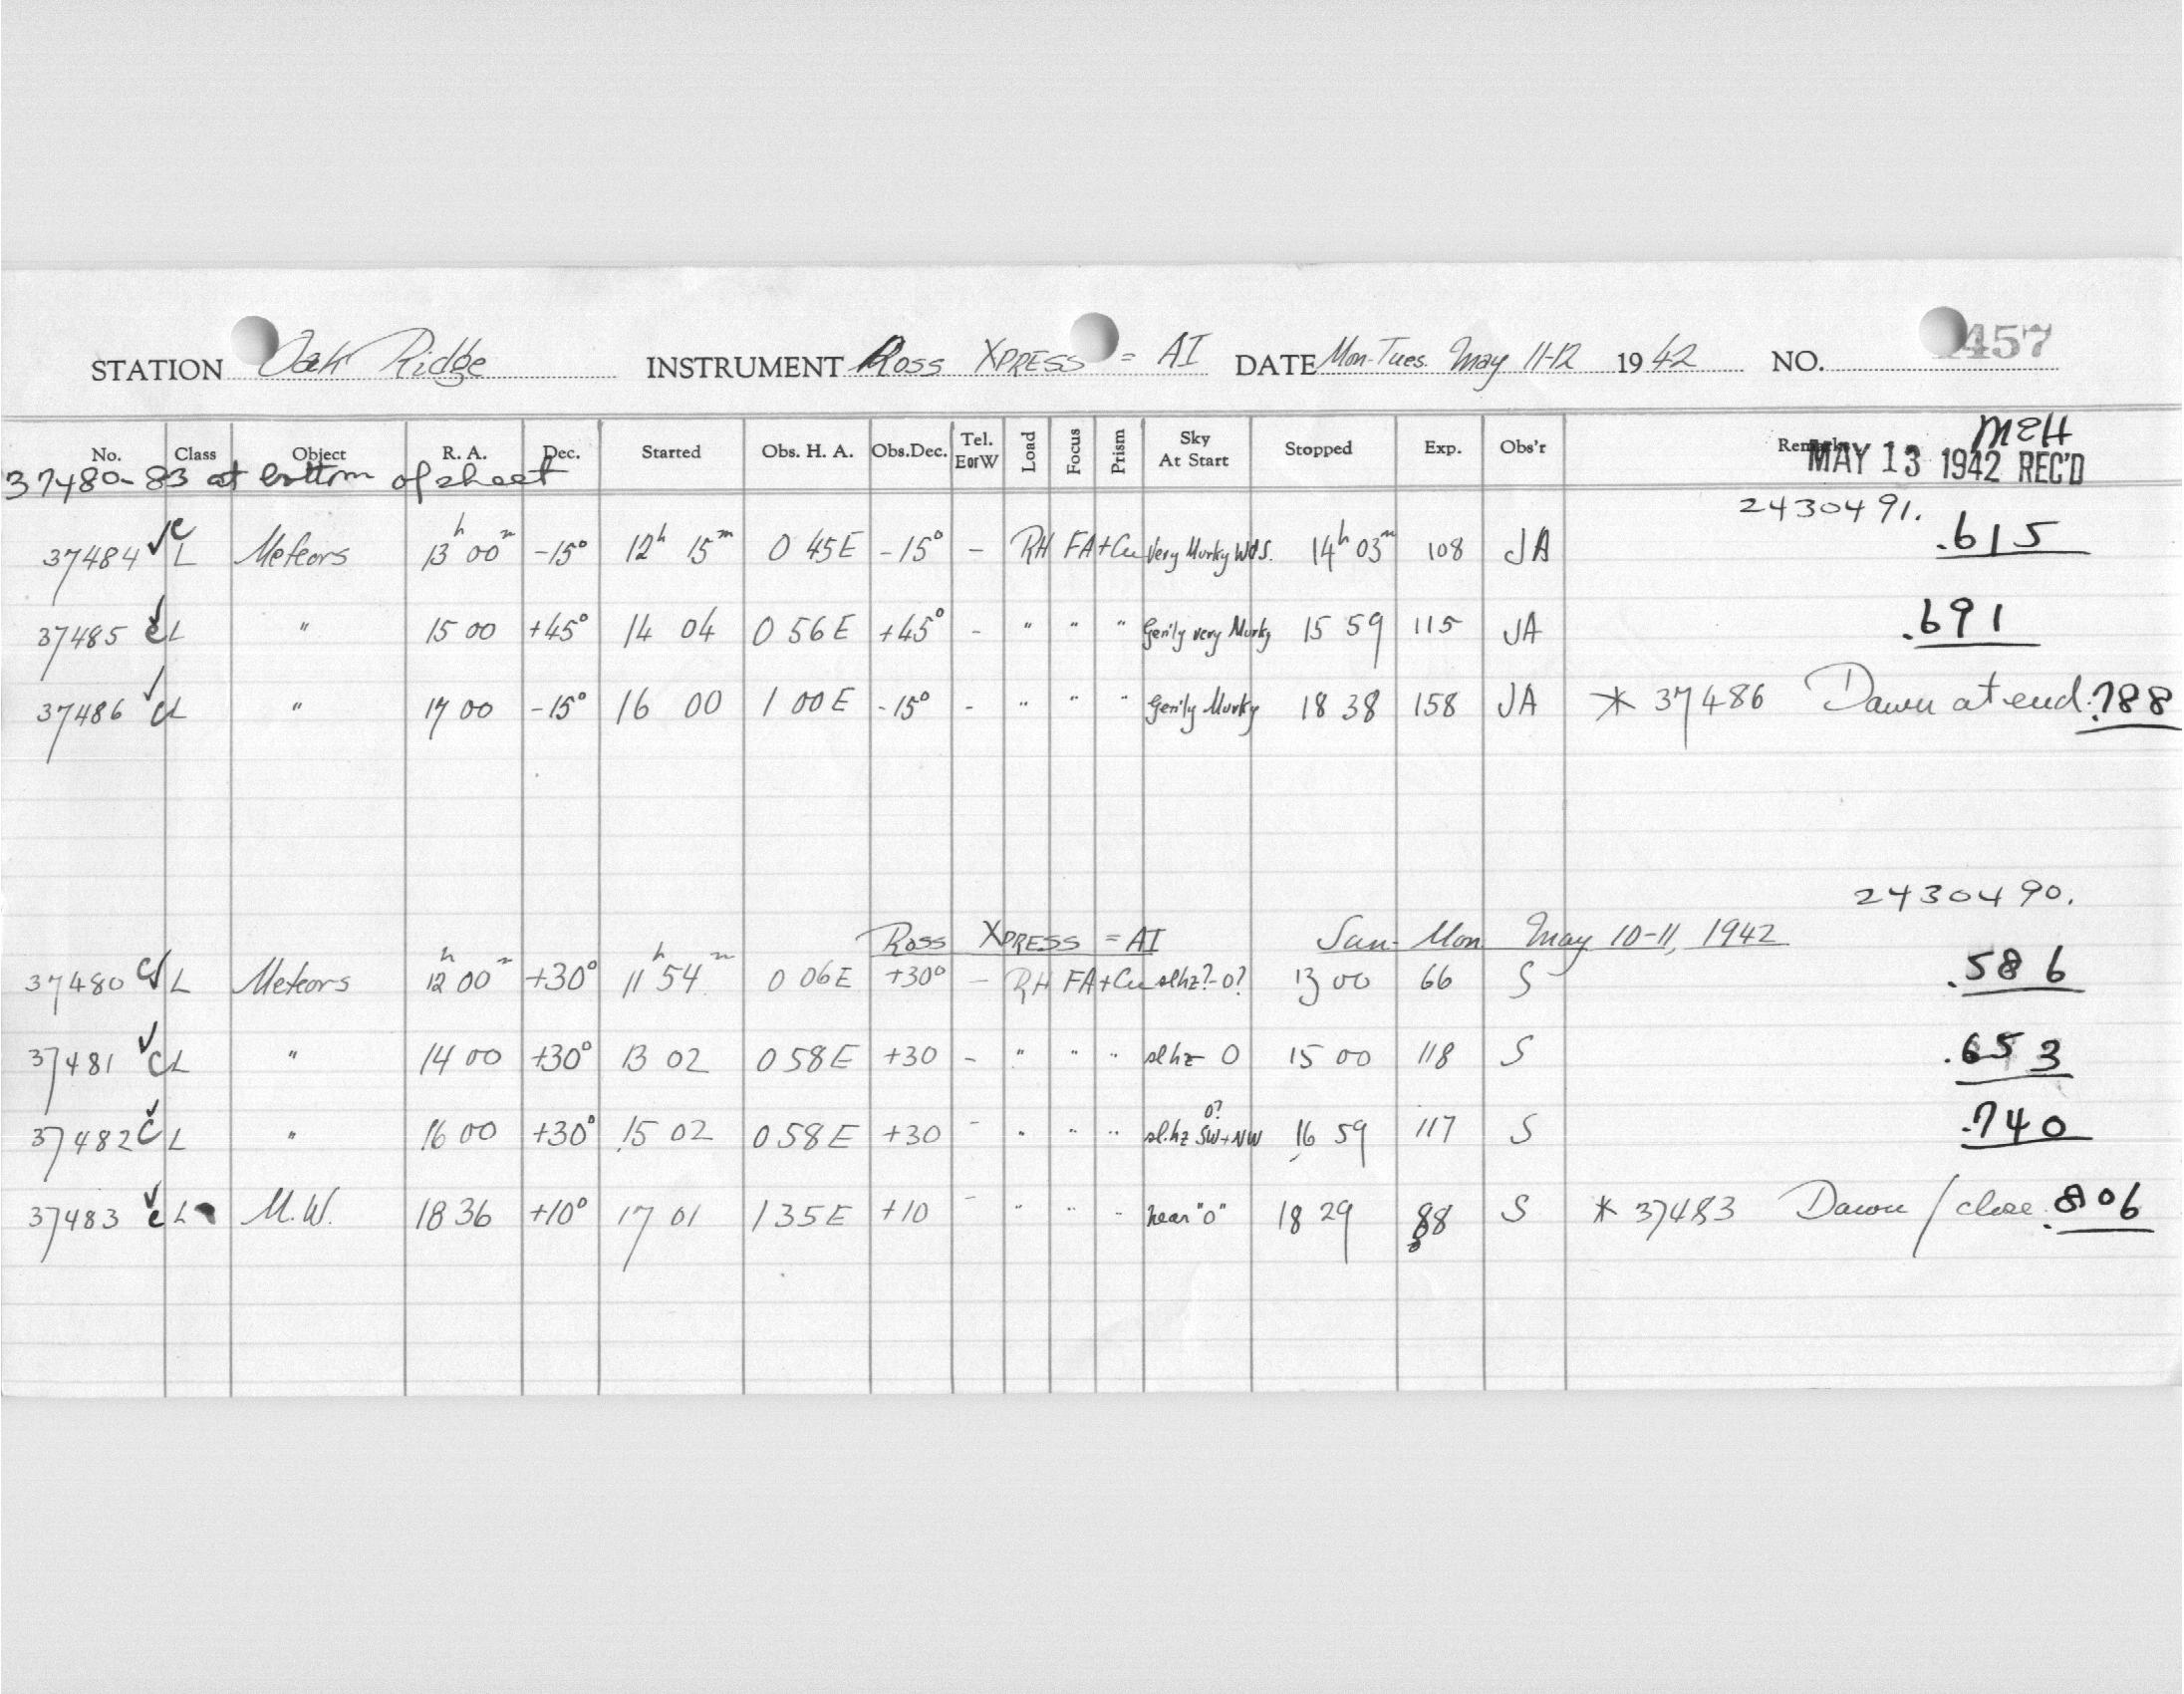 STATION Oak Ridge INSTRUMENT Ross XPRESS = AI DATE Mon-Tues. May 11-12 1942 NO. 457
MEH
No. Class Object R. A. Dec. Started Obs. H. A. Obs.Dec. Tel. EorW Load Focus Prism Sky At Start Stopped Exp. Obs'r Remarks
MAY 13 1942 REC'D
37480-83 at bottom of sheet
2430491.
37484 ✓ c L Meteors 13h 00m -15° 12h 15m 0 45E -15° - RH FA +Cu Very Murky Wds. 14h 03m 108 JA .615
37485 ✓ c L " 15 00 +45° 14 04 0 56E +45° - " " " Gen'ly very Murky 15 59 115 JA .691
37486 ✓ c L " 17 00 -15° 16 00 1 00E -15° - " " " Gen'ly Murky 18 38 158 JA * 37486 Dawn at end .788
2430490.
Ross XPRESS = AI Sun- Mon May 10-11, 1942
37480 c ✓ L Meteors 12h 00m +30° 11h 54m 0 06E +30° - RH FA +Cu slhz?-0? 13 00 66 S .586
37481 ✓ c L " 14 00 +30° 13 02 0 58E +30 - " " " slhz- 0 15 00 118 S .653
0?
37482 ✓ c L " 16 00 +30° 15 02 0 58E +30 - " " " sl.hz SW+NW 16 59 117 S .740
37483 ✓ c L M.W. 18 36 +10° 17 01 1 35E +10 - " " " near "0" 18 29 88 S * 37483 Dawn / close .806